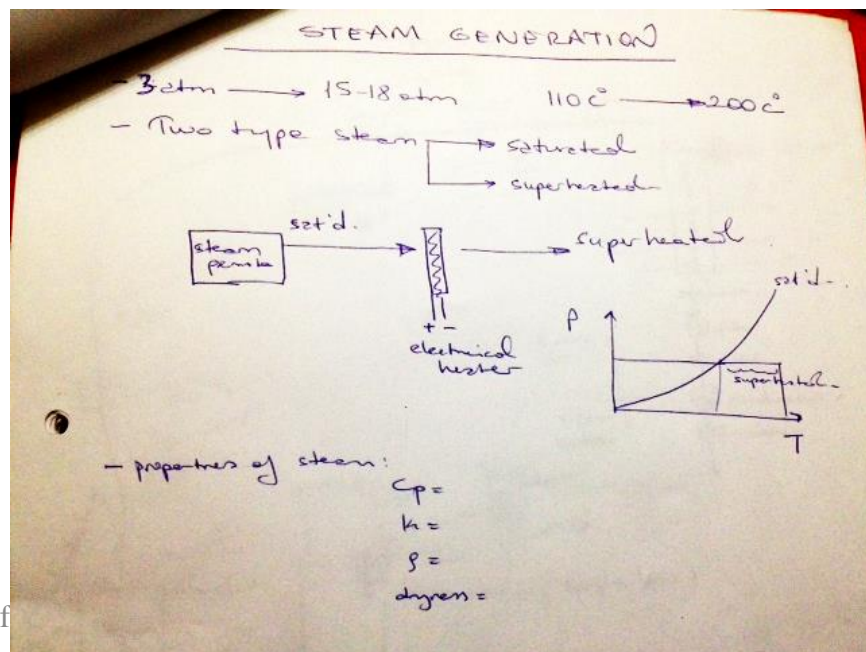 STEAM GENERATION
- 3 atm → 15-18 atm 110 C° → 200 C°
- Two type steam → saturated
→ superheated
sat'd. → superheated
steam
+ -
electrical
heater
sat'd.
P
superheated
T
- properties of steam:
Cp =
k =
ρ =
dryness =
f